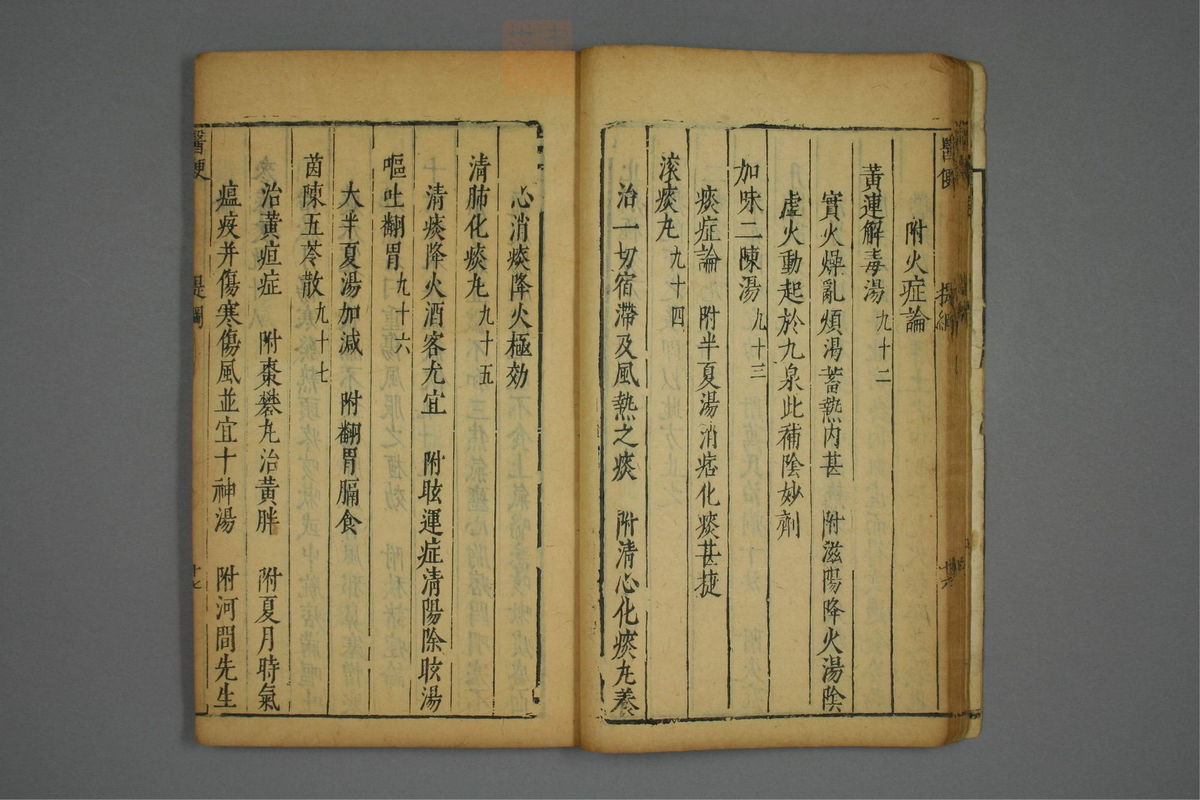 附火症論
黃連解毒湯九十二
實火燥亂煩渴蓄熱内甚　附滋陽降火湯陰
虛火動起於九泉此補陰妙劑
加味二陳湯九十三
痰症論　附半夏湯消痞化痰甚捷
滚痰尢九十四
治一切宿滯及風熱之痰　附清心化痰尢養
心消痰降火極効
清肺化痰尢九十五
清痰降火酒客尤宜　附眩運症清陽除眩湯
嘔吐翻胃九十六
大半夏湯加減　附翻胃膈食
茵陳五苓散九十七
治黃疸症　附棗礬尢治黃胖　附夏月時氣
瘟疫并傷寒傷風並宜十神湯　附河間先生